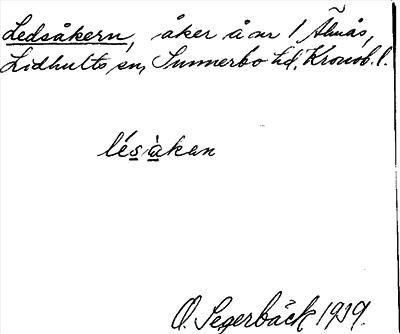 Ledsåkern, åker å ar 1 Älmås,
Lidhults sn, Sunnerbo hd, Kronob. l.
lésàkan
O. Segerbäck 1939.